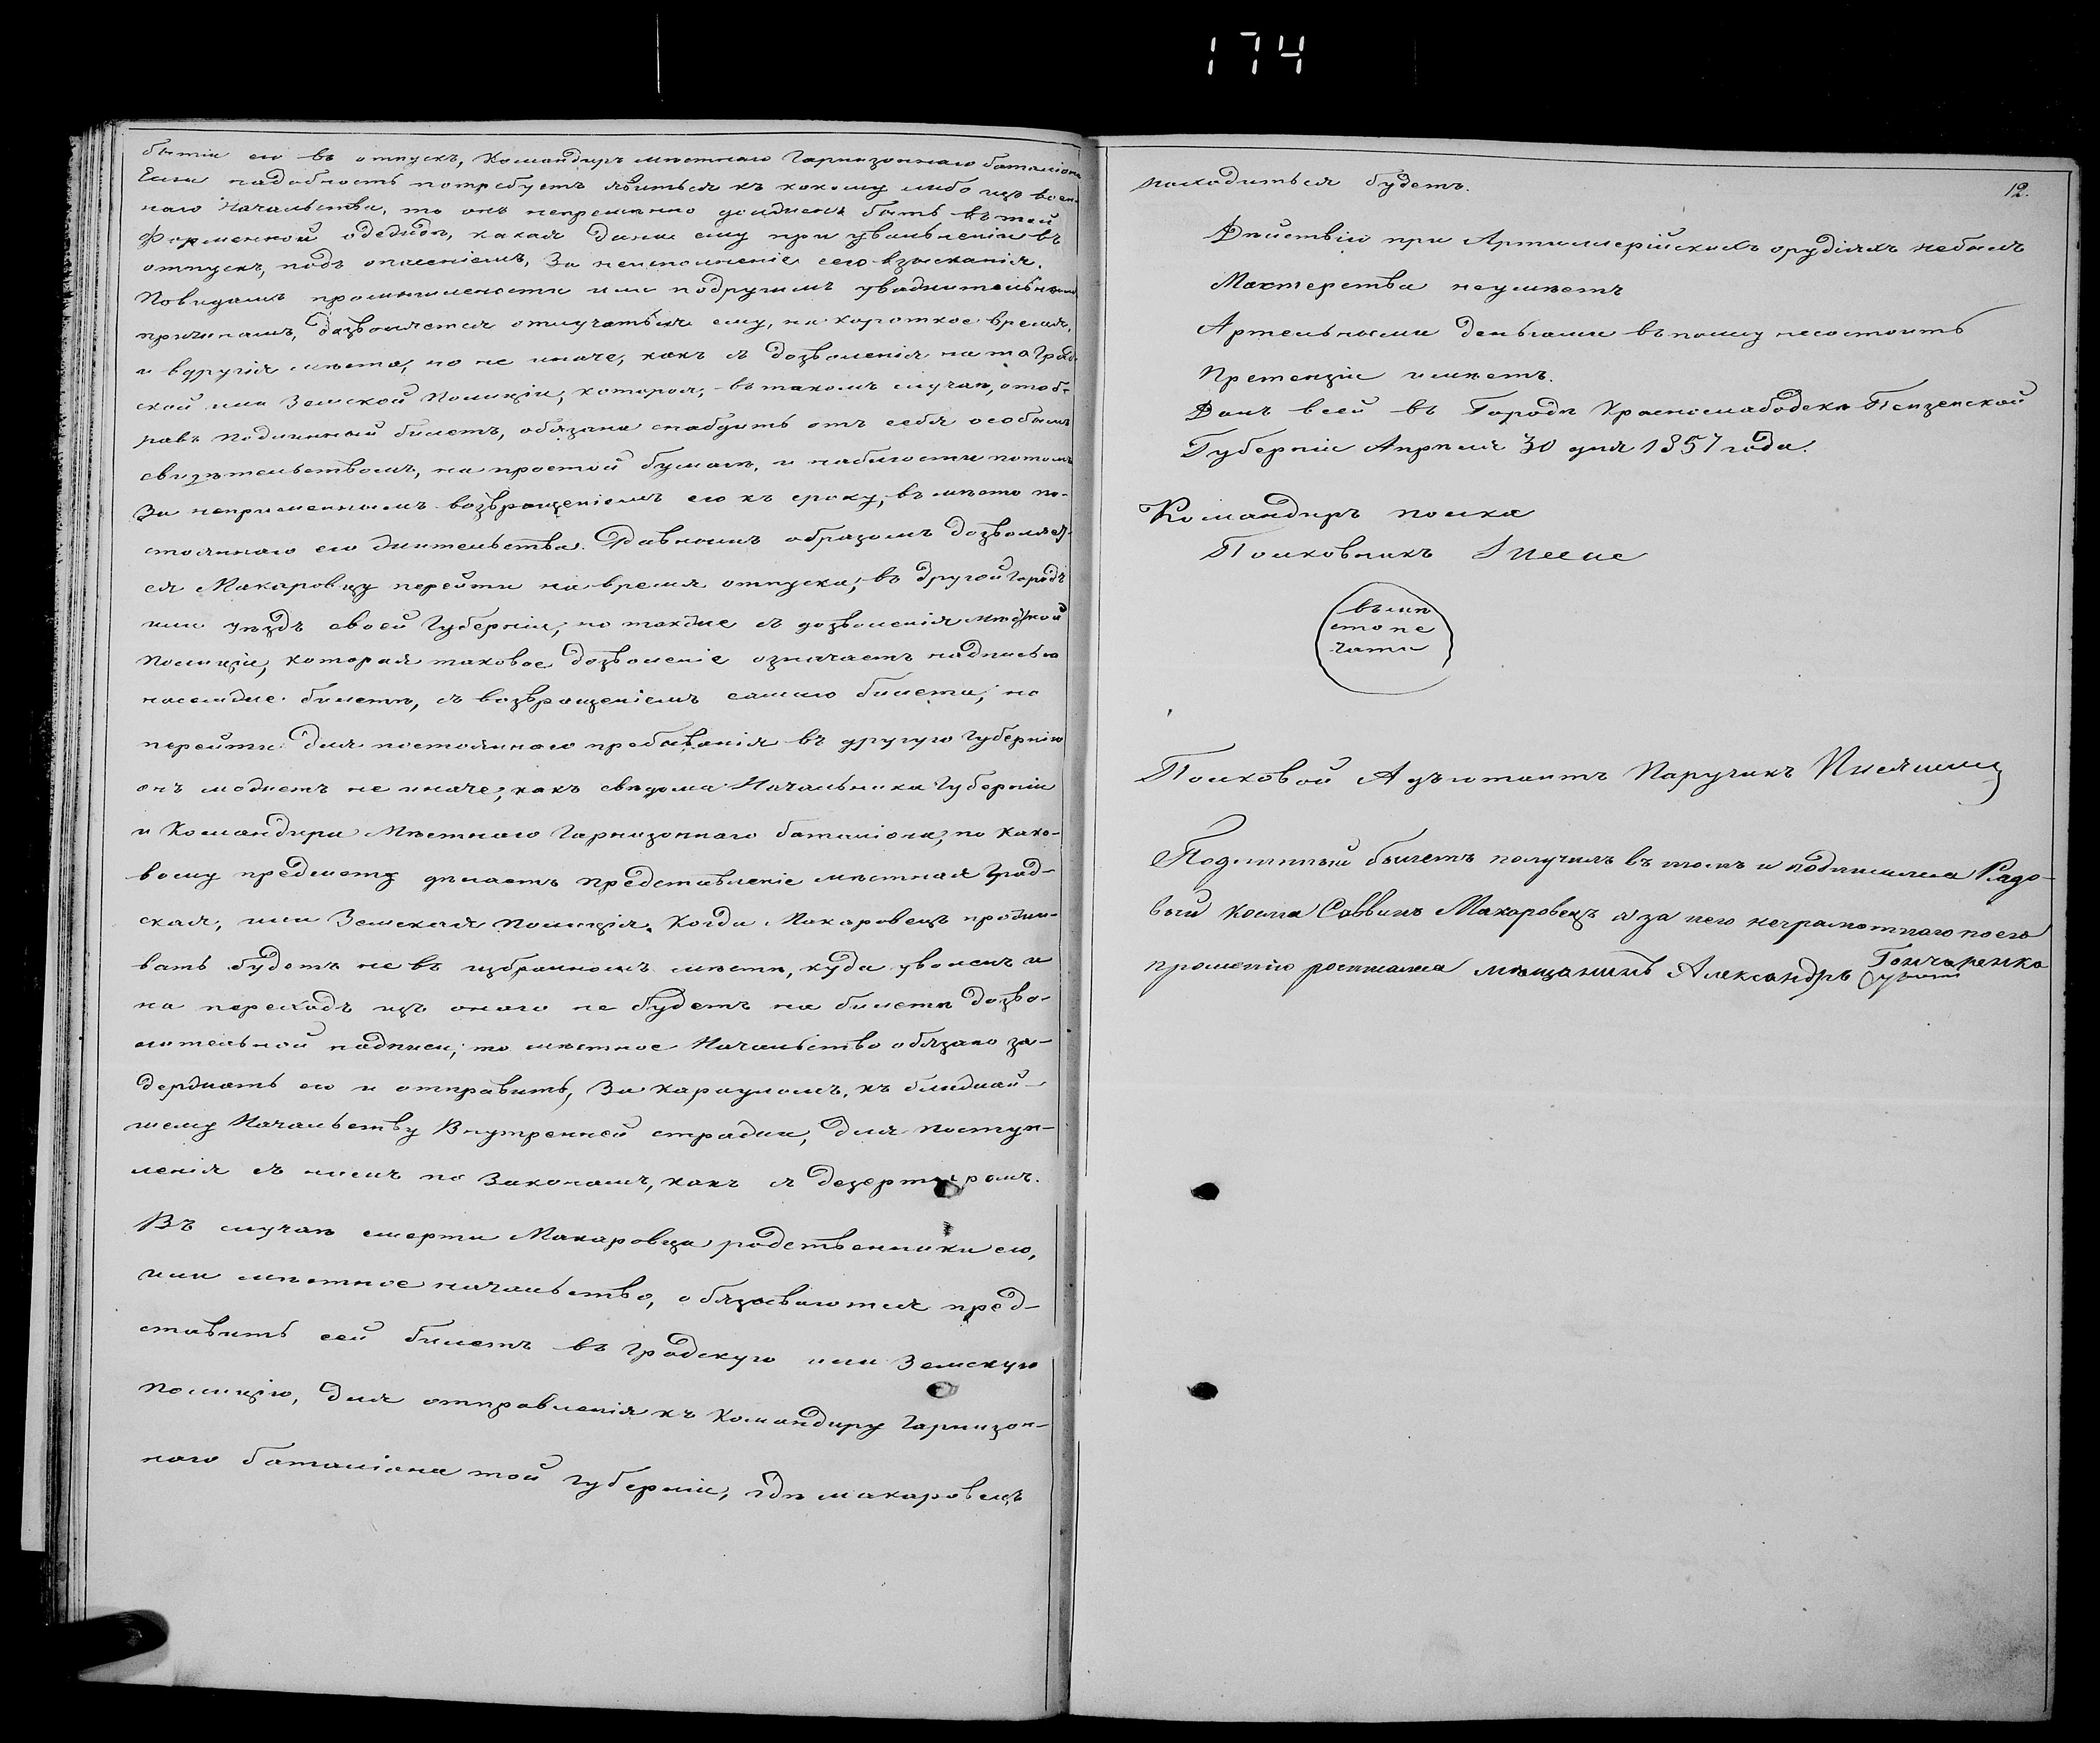 174
бытіи его въ отпускъ, Командиръ мѣстнаго Гарнизоннаго баталіона
Если надобность потребуетъ явиться къ какому либо изъ воен-
наго Начальства, то онъ непременно долженъ быть въ той
Форменной одеждѣ, какая дана ему при увольненіи въ
отпускъ, подъ опасеніемъ, За неисполненіе сего взысканія.
По видамъ промышлености или подругимъ уважительнымъ
причинамъ, дозволяется отлучаться ему, на короткое время,
и вдругія мѣста, но не иначе, какъ съ дозволенія на то Град-
ской или Земской Полиціи, которая, въ такомъ случаѣ, отоб-
равъ подлинный билетъ, обязана снабдить отъ себя особымъ
свидѣтельствомъ, на простой бумагѣ, и наблюсти потомъ
За непременнымъ возвращеніемъ его къ сроку, въ мѣсто по-
стояннаго его жительства. Равнымъ образомъ дозволяет-
ся Макаровцу перейти на время отпуска, въ другой Городъ
или уѣздъ своей Губерніи, но также съ дозволенія мѣстной
Полиціи, которая таковое дозволеніе означаетъ надписью
насемже билетѣ, съ возвращеніемъ самаго билета, но
перейти для постояннаго пребыванія въ другую Губернію
онъ можетъ не иначе, какъ свѣдома Начальника Губерніи
и Командира Мѣстнаго Гарнизоннаго баталіона, по како-
вому предмету дѣлаетъ представленіе мѣстная Град-
ская, или Земская Полиція. Когда Макаровецъ прожи-
вать будетъ не въ избранномъ мѣстѣ, куда уволенъ и
на переходъ изъ онаго не будетъ на билетѣ дозво-
лительной надписи, то мѣстное Начальство обязано за-
держать его и отправить, За карауломъ, къ ближай-
шему Начальству Внутренней стражи, для поступ-
ленія съ нимъ по Законамъ, какъ съ дезертиромъ.
Въ случаѣ смерти Макаровца родственники его,
или мѣстное начальство, обязываются пред-
ставить сей билетъ въ Градскую или Земскую
Полицію, для отправленія къ Командиру Гарнизон-
наго баталіона той Губерніи, гдѣ макаровецъ
находиться будетъ.
12.
Дѣйствіи при Артиллерійскихъ орудіяхъ небылъ
Мастерства неумѣетъ
Артельными деньгами въ полку несостоитъ
Претензіи имѣетъ.
Данъ всей въ Городѣ Краснослабодскѣ Пензенской
Губерніи Апреля 30 дня 1857 года.
Командиръ полка
Полковникъ
въ мѣ
сто пе
чати
Полковой Адъютантъ Паручикъ
Подлинный билетъ получилъ въ томъ и подписался Рядо-
вый Косма Саввинъ Макаровецъ а за него неграмотнаго поего
прошенію росписался мѣщанинъ Александръ Гончаренко